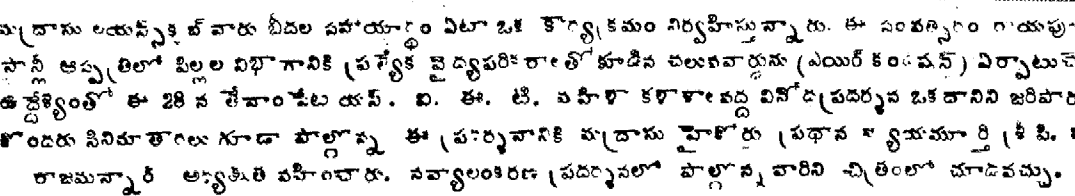 మద్రాసు లయన్స్‌క్లబ్ వారు బీదల సహాయార్థం ఏటా ఒక కార్యక్రమం నిర్వహిస్తున్నారు. ఈ సంవత్సరం రాయపు
స్టాన్లీ ఆస్పత్రిలో పిల్లల విభాగానికి ప్రత్యేక వైద్యపరికరాలతో కూడిన చలువవార్డును (ఎయిర్ కండిషన్) ఏర్పాటుచే
ఉద్దేశ్యంతో ఈ 28 న తేనాంపేట యస్. ఐ. ఈ. టి. మహిళా కళాశాలవద్ద వినోదప్రదర్శన ఒకదానిని జరిపారు
కొందరు సినిమా తారలు గూడా పాల్గొన్న ఈ ప్రదర్శనానికి మద్రాసు హైకోర్టు ప్రధాన న్యాయమూర్తి శ్రీ పి.
రాజమన్నార్ అధ్యక్షత వహించారు. నవ్యాలంకరణ ప్రదర్శనలో పాల్గొన్న వారిని చిత్రంలో చూడవచ్చు.